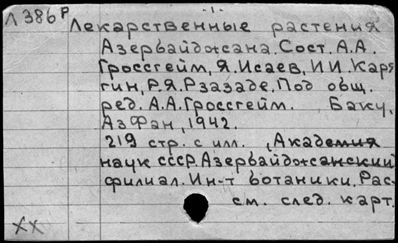 -1-
Л 386Р
Лекарственные растения
Азербайджана. Сост. А.А.
Гроссгейм, Я. Исаев, И.И. Каря
гин, Р.Я. Рзазаде. Под общ.
ред. А.А. Гроссгейм. Баку,
АзФан, 1942.
219 стр. с илл. (Академия
наук СССР. Азербайджанский
филиал. Ин-т ботаники. Рас-
см. след. карт.
XX